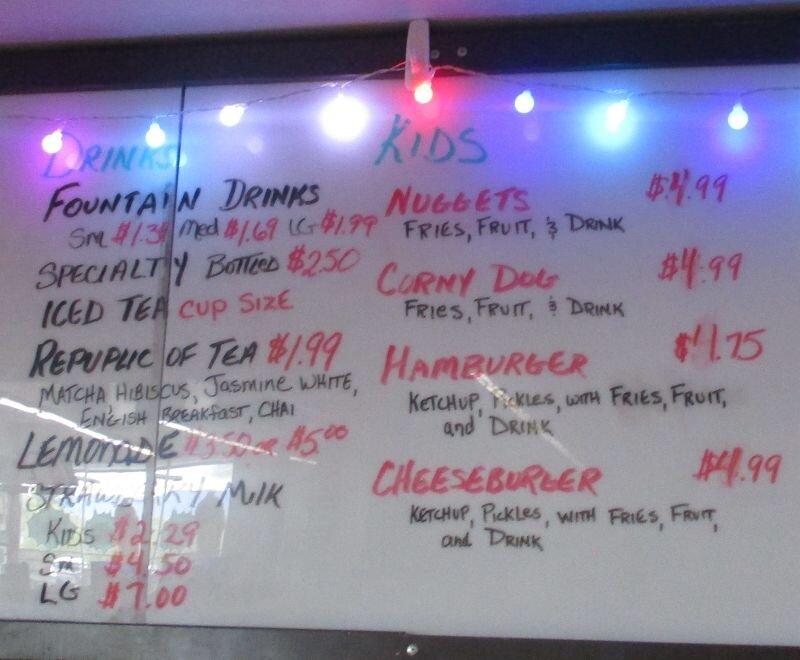 DRINKS
FOUNTAIN DRINKS
Sm $1.39 Med $1.69 LG $1.99
SPECIALTY BOTTLED $2.50
ICED TEA CUP SIZE
REPUPLIC OF TEA $1.99
MATCHA HIBISCUS, Jasmine WHITE,
ENGlISH BREAKfAST, CHAI
LEMONADE $3.50 or $5.00
STRAWBERRY MilK
KidS $2.29
Sm $4.50
LG $7.00
KIDS
NUGGETS $4.99
FRIES, FRUIT, & DRINK
CORNY DOG $4.99
FRIES, FRUIT, & DRINK
HAMBURGER $4.75
KETCHUP, Pickles, WITH FRIES, FRUIT,
and DRINK
CHEESEBURGER $4.99
KETCHUP, Pickles, WITH FRIES, FRUIT,
and DRINK